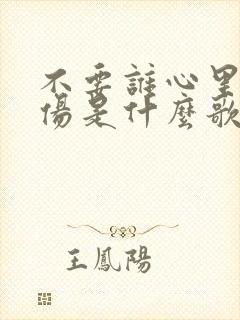 不要誰心里
傷是什麼歌
王鳳陽